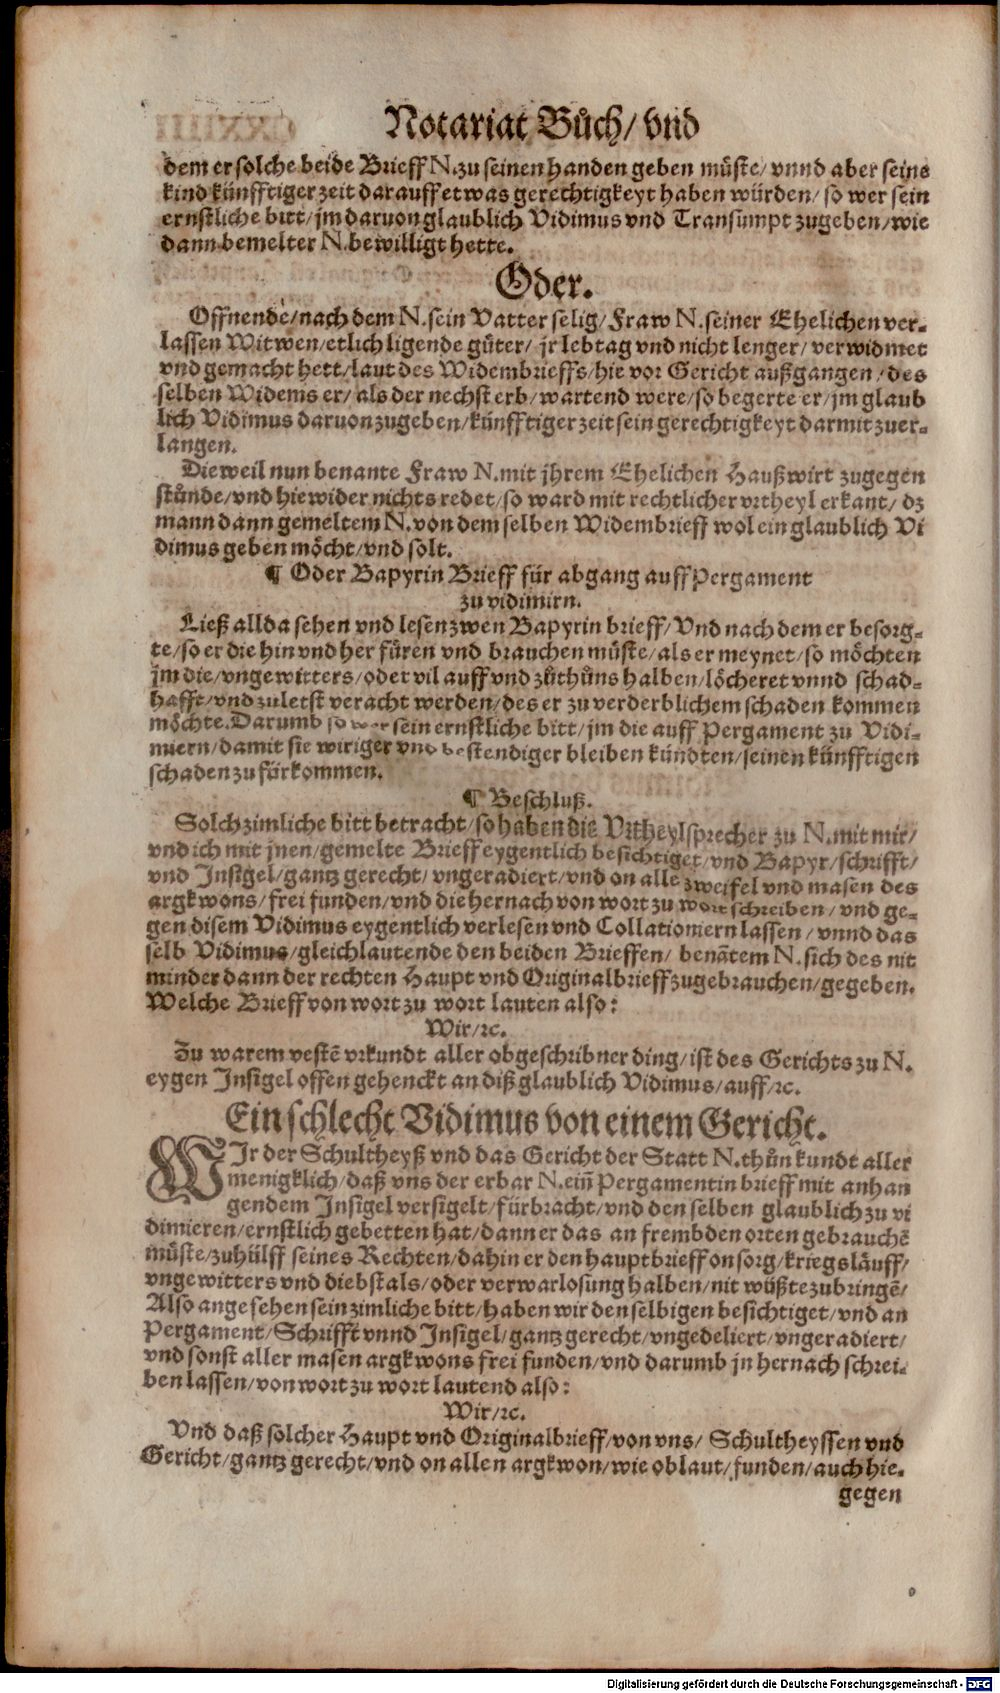 Notariat Bůch/ vnd
dem er solche beide Brieff N. zu seinen handen geben müste/ vnnd aber seine
kind künfftiger zeit darauff etwas gerechtigkeyt haben würden/ so wer sein
ernstliche bitt/ jm daruon glaublich Vidimus vnd Transumpt zugeben/ wie
dann bemelter N. bewilligt hette.
Oder.
Offnende/ nach dem N. sein Vatter selig/ Fraw N. seiner Ehelichen ver-
lassen Witwen/ etlich ligende güter/ jr lebtag vnd nicht lenger/ verwidmet
vnd gemacht hett/ laut des Widembrieffs/ hie vor Gericht außgangen/ des
selben Widems er/ als der nechst erb/ wartend were/ so begerte er/ jm glaub
lich Vidimus daruon zugeben/ künfftiger zeit sein gerechtigkeyt darmit zuer-
langen.
Dieweil nun benante Fraw N. mit jhrem Ehelichen Haußwirt zugegen
stůnde/ vnd hiewider nichts redet/ so ward mit rechtlicher vrtheyl erkant/ dz
mann dann gemeltem N. von dem selben Widembrieff wol ein glaublich Vi
dimus geben möcht/ vnd solt.
¶ Oder Bapyrin Brieff für abgang auff Pergament
zu vidimirn.
Ließ allda sehen vnd lesen zwen Bapyrin brieff/ Vnd nach dem er besorg-
te/ so er die hin vnd her füren vnd brauchen müste/ als er meynet/ so möchten
jm die/ vngewitters/ oder vil auff vnd zůthůns halben/ löcheret vnnd schad-
hafft/ vnd zuletst veracht werden/ des er zu verderblichem schaden kommen
möchte. Darumb so wer sein ernstliche bitt/ jm die auff Pergament zu Vidi-
miern/ damit sie wiriger vnd bestendiger bleiben kündten/ seinen künfftigen
schaden zu fürkommen.
¶ Beschluß.
Solch zimliche bitt betracht/ so haben die Vrtheylsprecher zu N. mit mir/
vnd ich mit jnen/ gemelte Brieff eygentlich besichtiget/ vnd Bapyr/ schrifft/
vnd Insigel/ gantz gerecht/ vngeradiert/ vnd on alle zweifel vnd masen des
argkwons/ frei funden/ vnd die hernach von wort zu wort schreiben/ vnd ge-
gen disem Vidimus eygentlich verlesen vnd Collationiern lassen/ vnnd das
selb Vidimus/ gleichlautende den beiden Brieffen/ benãtem N. sich des nit
minder dann der rechten Haupt vnd Originalbrieff zugebrauchen/ gegeben.
Welche Brieff von wort zu wort lauten also:
Wir/ ꝛc.
Zu warem vestẽ vrkundt aller obgeschribner ding/ ist des Gerichts zu N.
eygen Insigel offen gehenckt an diß glaublich Vidimus/ auff/ ꝛc.
Ein schlecht Vidimus von einem Gericht.
WJr der Schultheyß vnd das Gericht der Statt N. thůn kundt aller
menigklich/ daß vns der erbar N. eiñ Pergamentin brieff mit anhan
gendem Insigel versigelt/ fürbracht/ vnd den selben glaublich zu vi
dimieren/ ernstlich gebetten hat/ dann er das an frembden orten gebrauchẽ
müste/ zu hülff seines Rechten/ dahin er den hauptbrieff on sorg/ kriegsläuff/
vngewitters vnd diebstals/ oder verwarlosung halben/ nit wüßte zubringẽ/
Also angesehen sein zimliche bitt/ haben wir den selbigen besichtiget/ vnd an
Pergament/ Schrifft vnnd Insigel/ gantz gerecht/ vngedeliert/ vngeradiert/
vnd sonst aller masen argkwons frei funden/ vnd darumb jn hernach schrei-
ben lassen/ von wort zu wort lautend also:
Wir/ ꝛc.
Vnd daß solcher Haupt vnd Originalbrieff/ von vns/ Schultheyssen vnd
Gericht/ gantz gerecht/ vnd on allen argkwon/ wie oblaut/ funden/ auch hie-
gegen
Digitalisierung gefördert durch die Deutsche Forschungsgemeinschaft - DFG